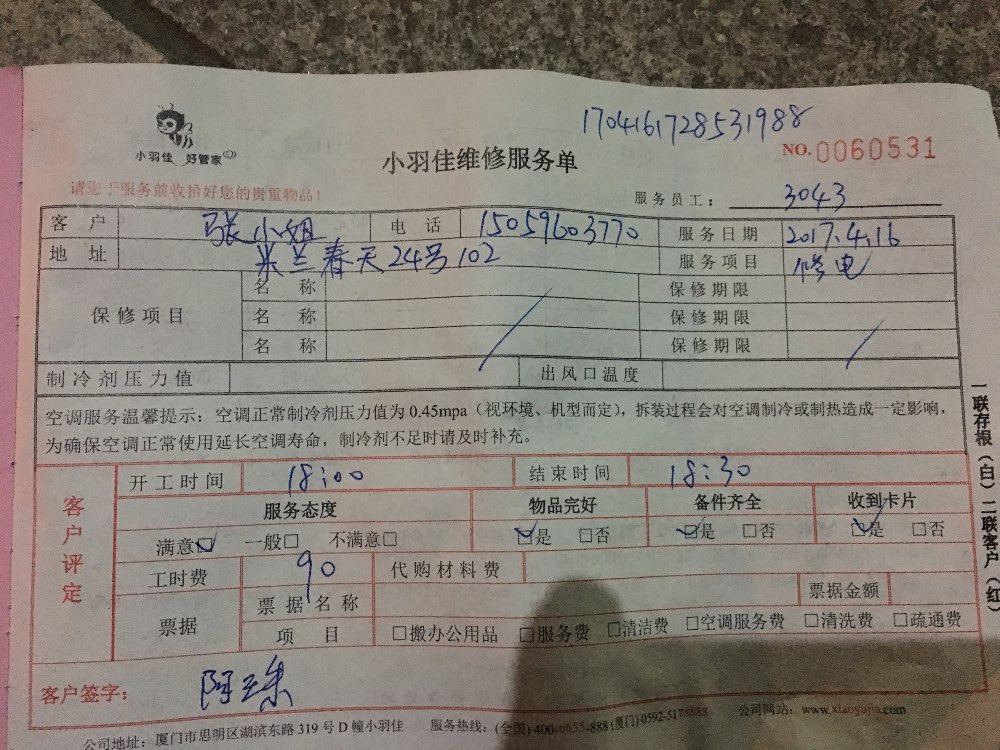 1704161728531988
小羽佳 好管家
小羽佳维修服务单
NO.0060531
请您于服务前收拾好您的贵重物品！
服务员工：3043
客户 张小姐 电话 15059603770 服务日期 2017.4.16
地址 米兰春天24号102 服务项目 修电
保修项目
名称 保修期限
名称 保修期限
名称 保修期限
制冷剂压力值 出风口温度
空调服务温馨提示：空调正常制冷剂压力值为0.45mpa（视环境、机型而定），拆装过程会对空调制冷或制热造成一定影响，
为确保空调正常使用延长空调寿命，制冷剂不足时请及时补充。
一联存根（白）二联客户（红）
客户评定
开工时间 18:00 结束时间 18:30
服务态度 物品完好 备件齐全 收到卡片
满意☑ 一般□ 不满意□ ☑是 □否 ☑是 □否 ☑是 □否
工时费 90 代购材料费
票据 票据名称 票据金额
项目 □搬办公用品 □服务费 □清洁费 □空调服务费 □清洗费 □疏通费
客户签字：
公司地址：厦门市思明区湖滨东路319号D幢小羽佳 服务热线：(全国)400-6655-888 (厦门)0592-5178888 公司网站：www.xiaoyujia.com